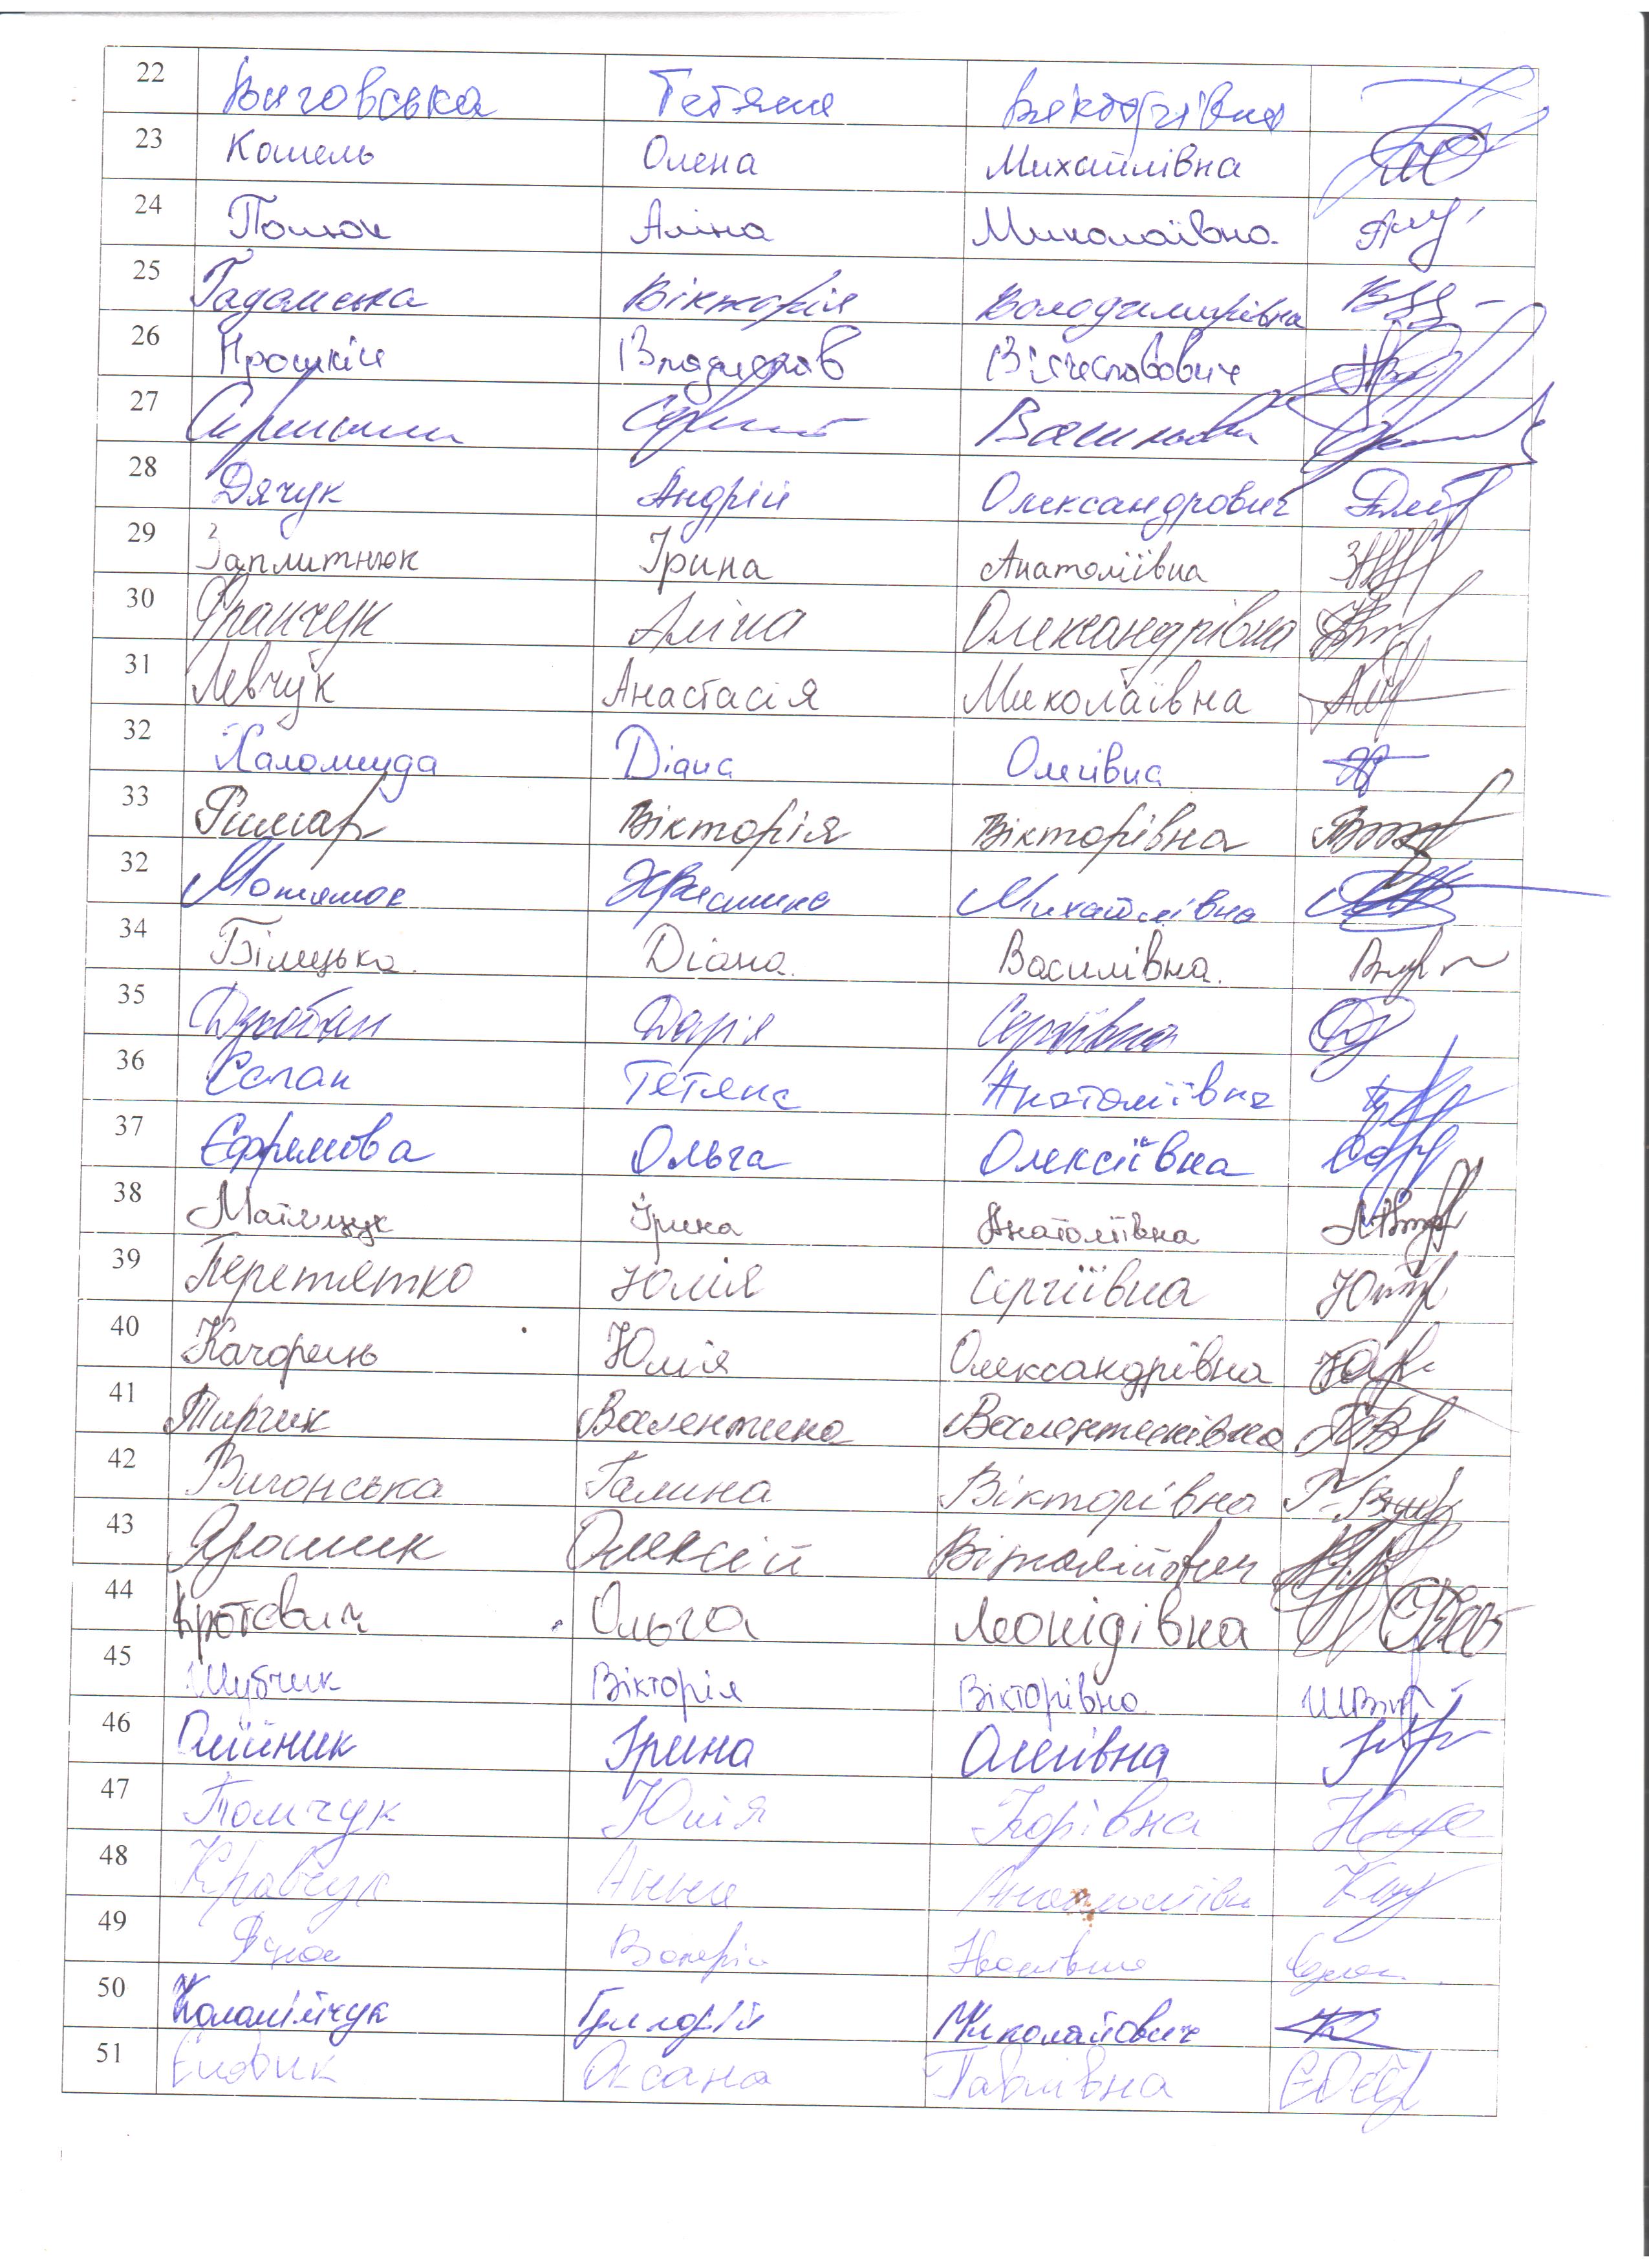 22 Виговська Тетяна Вікторівна
23 Кошель Олена Михайлівна
24 Аліна Миколаївна
25 Гадомська Вікторія Володимирівна
26 Прошкін Владислав В'ячеславович
27 Сергій Васильович
28 Дячук Андрій Олександрович
29 Заплитнюк Ірина Анатоліївна
30 Франчук Аліна Олександрівна
31 Левчук Анастасія Миколаївна
32 Халомида Діана Олегівна
33 Римар Вікторія Вікторівна
32 Христина Михайлівна
34 Білецька Діана Василівна
35 Дзюбан Дарія Сергіївна
36 Тетяна Анатоліївна
37 Єфремова Ольга Олексіївна
38 Ірина Анатоліївна
39 Перетятко Юлія Сергіївна
40 Качорець Юлія Олександрівна
41 Тиргик Валентина Валентинівна
42 Вигонська Галина Вікторівна
43 Ярошик Олексій Віталійович
44 Кротевич Ольга Леонідівна
45 Шубчик Вікторія Вікторівна
46 Олійник Ірина Олегівна
47 Томчук Юлія Ігорівна
48 Кравчук Анна
49 Валерія Іванівна
50 Коломійчук Григорій Миколайович
51 Оксана Павлівна